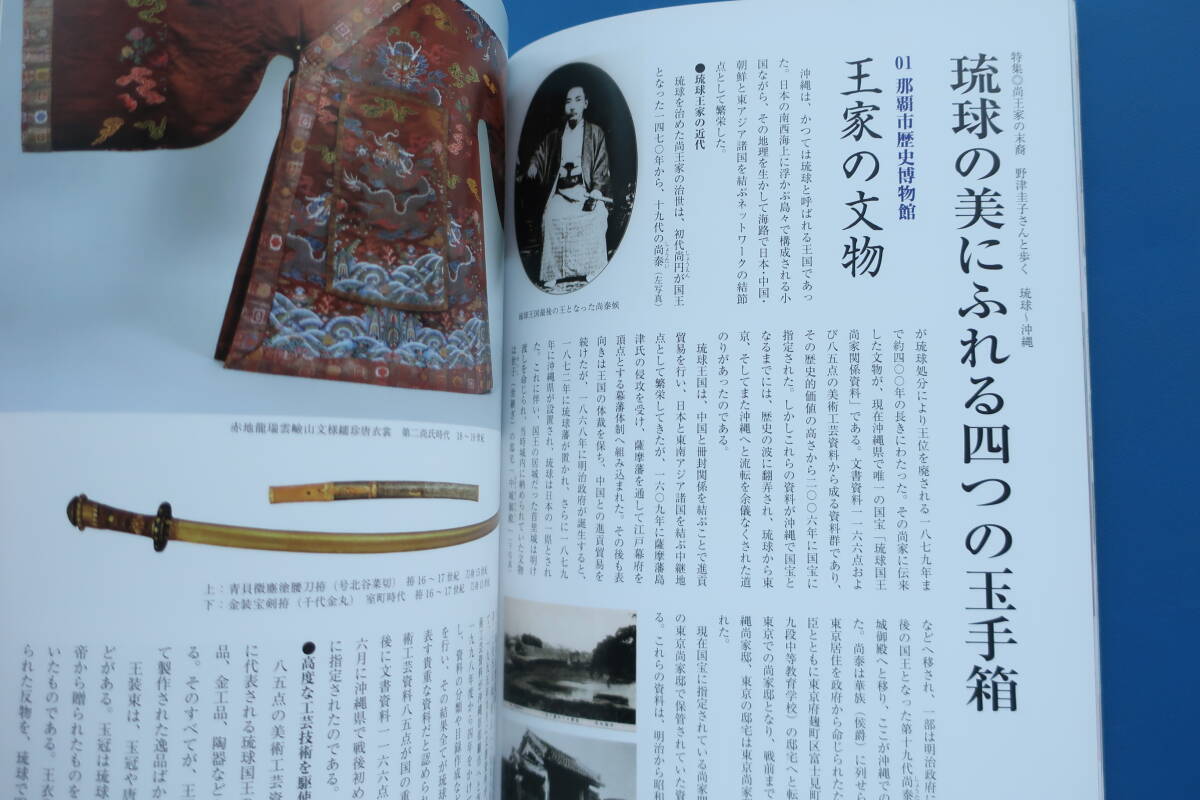 特集◎尚王家の末裔　野津圭子さんと歩く　琉球〜沖縄
琉球の美にふれる四つの玉手箱
01 那覇市歴史博物館
王家の文物
沖縄は、かつては琉球と呼ばれる王国であっ
た。日本の南西海上に浮かぶ島々で構成される小
国ながら、その地理を生かして海路で日本・中国・
朝鮮と東アジア諸国を結ぶネットワークの結節
点として繁栄した。
●琉球王家の近代
琉球を治めた尚王家の治世は、初代尚円が国王
しょうえん
となった一四七〇年から、十九代の尚泰（左写真）
しょうたい
琉球王国最後の王となった尚泰候
が琉球処分により王位を廃される一八七九年ま
で約四〇〇年の長きにわたった。その尚家に伝来
した文物が、現在沖縄県で唯一の国宝「琉球国王
尚家関係資料」である。文書資料一一六六点およ
び八五点の美術工芸資料から成る資料群であり、
その歴史的価値の高さから二〇〇六年に国宝に
指定された。しかしこれらの資料が沖縄で国宝と
なるまでには、歴史の波に翻弄され、琉球から東
京、そしてまた沖縄へと流転を余儀なくされた道
のりがあったのである。
琉球王国は、中国と冊封関係を結ぶことで進貢
貿易を行い、日本と東南アジア諸国を結ぶ中継地
点として繁栄してきたが、一六〇九年に薩摩藩島
津氏の侵攻を受け、薩摩藩を通して江戸幕府を
頂点とする幕藩体制へ組み込まれた。その後も表
向きは王国の体裁を保ち、中国との進貢貿易を
続けたが、一八六八年に明治政府が誕生すると、
一八七二年に琉球藩が置かれ、さらに一八七九
年に沖縄県が設置され、琉球は日本の一県とされ
た。これに伴い、国王の居城だった首里城は明け
渡しを命じられ、当時城内に納められていた文物
は世子（世継ぎ）の邸宅「中城御殿」（下写真）
などへ移され、一部は明治政府に
後の国王となった第十九代尚泰
しょうたい
城御殿へと移り、ここが沖縄での
た。尚泰は華族（侯爵）に列せら
東京居住を政府から命じられた
臣とともに東京府麹町区富士見町
九段中等教育学校）の邸宅へと転
東京での尚家邸となり、戦前まで
縄尚家邸、東京の邸宅は東京尚家
れた。
現在国宝に指定されている尚家関
の東京尚家邸で保管されていた資
る。これらの資料は、明治から昭和
赤地龍瑞雲嶮山文様繻珍唐衣裳　第二尚氏時代　18〜19世紀
上：青貝微塵塗腰刀拵（号北谷菜切）　拵16〜17世紀　刀身15世紀
下：金装宝剣拵（千代金丸）　室町時代　拵16〜17世紀
一九九八年度から四年をかけ
し、資料の分類や目録作成など
を行い、その結果全てが琉球
表す貴重な資料だと認められ
術工芸資料八五点が国の重
後に文書資料一一六六点
六月に沖縄県で戦後初め
に指定されたのである。
●高度な工芸技術を駆使
八五点の美術工芸資
に代表される琉球国王の
品、金工品、陶器など
る。そのすべてが、王
て製作された逸品ばか
王装束は、玉冠や唐
どがある。玉冠は琉球
帝から贈られたものを
いたものである。王衣
られた反物を、琉球で